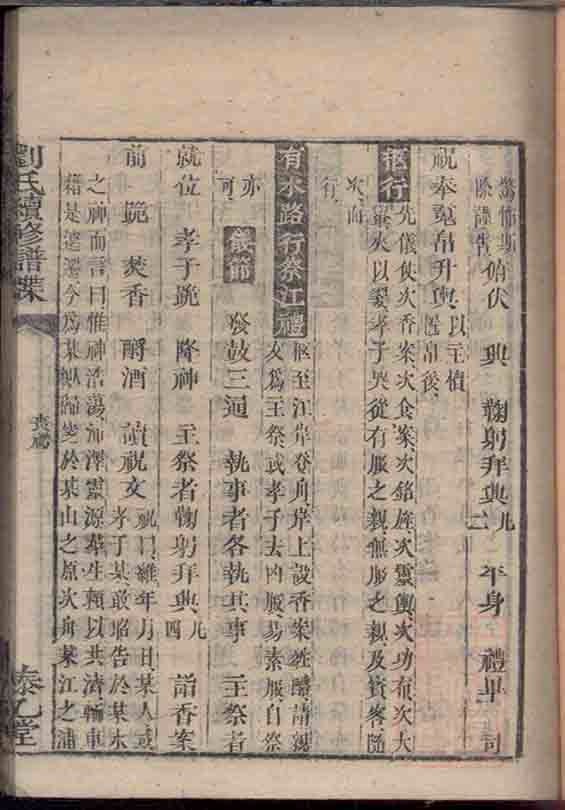 驚怖斯
俯伏 興 鞠躬拜興凡二 平身 禮畢 司
祝奉䰟帛升輿以主櫝置帛後
柩行
先儀仗次香案次食案次銘旌次靈輿次功布次大
轝夾以翣孝子哭從有服之親無服之親及賓客隨
次而
行
有水路行祭江禮
柩至江岸登舟岸上設香案牲醴請親
友爲主祭或孝子去凶服易素服自祭
亦可
儀節 發鼓三通 執事者各執其事 主祭者
就位 孝子跪 降神 主祭者鞠躬拜興凡四 詣香案
前 跪 焚香 酹酒 讀祝文
祝曰維年月日某人或
孝子某敢昭告於某水
之神而言曰惟神浩蕩沛澤靈源羣生賴以共濟輀車
藉是 今爲某親歸窆於某山之原次舟某江之浦
劉氏續修譜牒
喪禮
泰乙堂